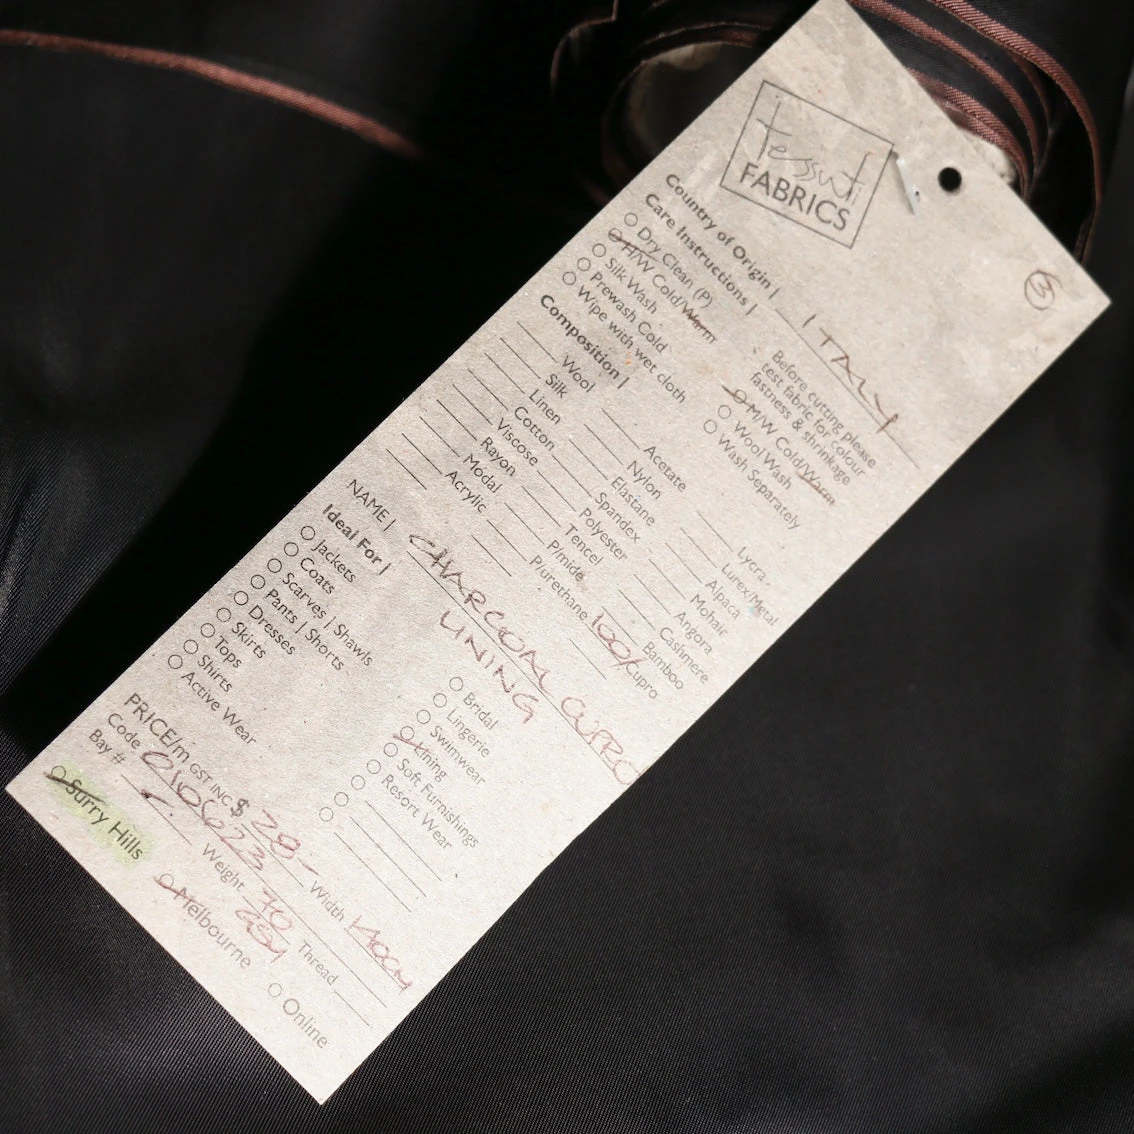 tessuti
FABRICS
M
Country of Origin | ITALY
Care Instructions |
Dry Clean (P)
H/W Cold/Warm
Silk Wash
Prewash Cold
Wipe with wet cloth
Before cutting please
test fabric for colour
fastness & shrinkage
M/W Cold/Warm
Wool Wash
Wash Separately
Composition |
Wool
Silk
Linen
Cotton
Viscose
Rayon
Modal
Acrylic
Acetate
Nylon
Elastane
Spandex
Polyester
Tencel
P/mide
P/urethane
Lycra
Lurex/Metal
Alpaca
Mohair
Angora
Cashmere
Bamboo
100/ Cupro
NAME | CHARCOAL CUPRO
LINING
Ideal For |
Jackets
Coats
Scarves | Shawls
Pants | Shorts
Dresses
Skirts
Tops
Shirts
Active Wear
Bridal
Lingerie
Swimwear
Lining
Soft Furnishings
Resort Wear
PRICE/m GST INC $28- Width 140CM
Code 010623 Weight 70 GSM Thread
Bay #
Surry Hills Melbourne Online